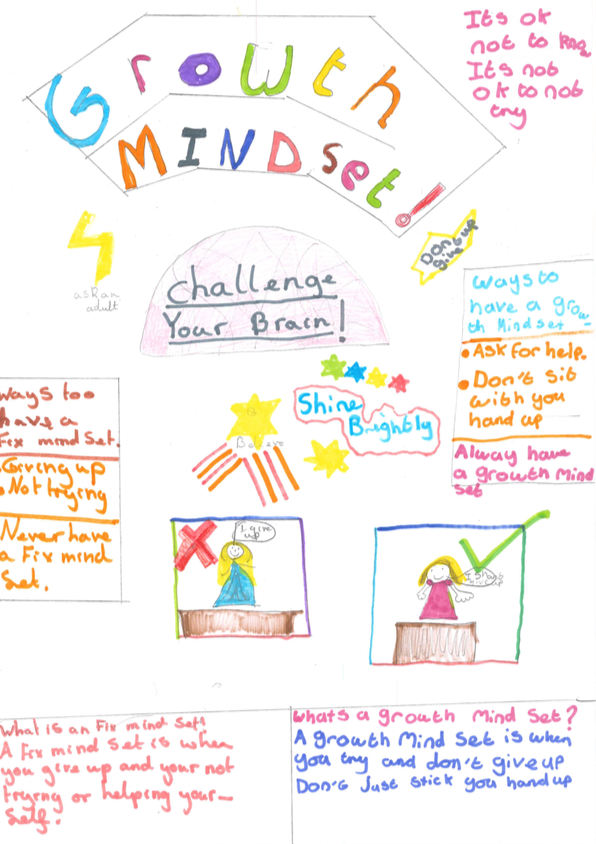 Growth
MINDset!
Its ok
not to know
Its not
ok to not
try
Don't
give up
ask an
adult
Challenge
Your Brain!
Ways to
have a grow
th Mindset -
• Ask for help.
• Don't sit
with you
hand up
Alway have
a growth Mind
set
Shine
Brightly
Believe
Ways too
have a
Fix mind Set.
• Giving up
• Not trying
Never have
a Fix mind
Set.
I give
up
What is an Fix mind Set?
A Fix mind Set is when
you give up and your not
trying or helping your-
self.
Whats a growth Mind Set?
A growth Mind Set is when
you try and don't give up
Don't Just stick you hand up